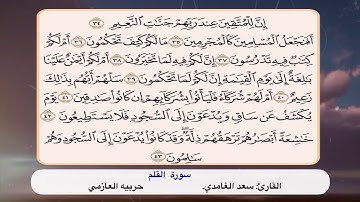 إِنَّ لِلْمُتَّقِينَ عِندَ رَبِّهِمْ جَنَّٰتِ ٱلنَّعِيمِ ٣٤
أَفَنَجْعَلُ ٱلْمُسْلِمِينَ كَٱلْمُجْرِمِينَ ٣٥ مَا لَكُمْ كَيْفَ تَحْكُمُونَ ٣٦ أَمْ لَكُمْ
كِتَٰبٌ فِيهِ تَدْرُسُونَ ٣٧ إِنَّ لَكُمْ فِيهِ لَمَا تَخَيَّرُونَ ٣٨ أَمْ لَكُمْ أَيْمَٰنٌ عَلَيْنَا
بَٰلِغَةٌ إِلَىٰ يَوْمِ ٱلْقِيَٰمَةِ إِنَّ لَكُمْ لَمَا تَحْكُمُونَ ٣٩ سَلْهُمْ أَيُّهُم بِذَٰلِكَ
زَعِيمٌ ٤٠ أَمْ لَهُمْ شُرَكَآءُ فَلْيَأْتُوا۟ بِشُرَكَآئِهِمْ إِن كَانُوا۟ صَٰدِقِينَ ٤١ يَوْمَ
يُكْشَفُ عَن سَاقٍ وَيُدْعَوْنَ إِلَى ٱلسُّجُودِ فَلَا يَسْتَطِيعُونَ ٤٢
خَٰشِعَةً أَبْصَٰرُهُمْ تَرْهَقُهُمْ ذِلَّةٌ وَقَدْ كَانُوا۟ يُدْعَوْنَ إِلَى ٱلسُّجُودِ وَهُمْ
سَٰلِمُونَ ٤٣
سورة القلم
القارئ: سعد الغامدي.
حربيه العازمي